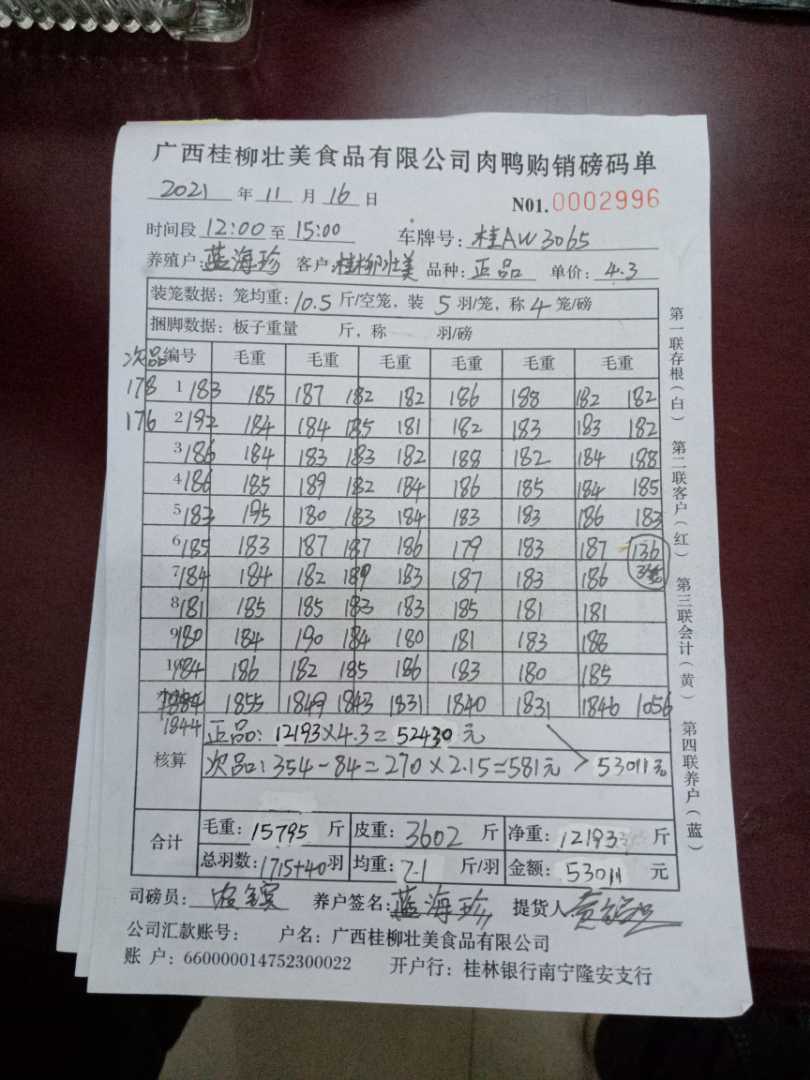 广西桂柳壮美食品有限公司肉鸭购销磅码单
2021 年 11 月 16 日 N01.0002996
时间段 12:00 至 15:00 车牌号: 桂AW3065
养殖户: 蓝海珍 客户: 桂柳壮美 品种: 正品 单价: 4.3
装笼数据: 笼均重: 10.5 斤/空笼, 装 5 羽/笼, 称 4 笼/磅
捆脚数据: 板子重量 斤, 称 羽/磅
次品 编号 毛重 毛重 毛重 毛重 毛重 毛重
178 1 183 185 187 182 182 186 188 182 182
176 2 192 184 184 185 181 182 183 183 182
3 186 184 183 183 182 188 182 184 188
4 186 185 189 182 184 186 185 184 185
5 183 195 180 183 184 183 183 186 183
6 185 183 187 187 186 179 183 187 136
7 184 184 182 189 183 187 183 186 3笼
8 181 185 185 183 183 185 181 181
9 180 184 190 184 180 181 183 188
10 184 186 182 185 186 183 180 185
1855 1849 1843 1831 1840 1831 1846 1056
1844
核算
正品: 12193×4.3=52430元
次品: 354-84=270×2.15=581元 > 53011元
合计 毛重: 15795 斤 皮重: 3602 斤 净重: 12193 斤
总羽数: 1715+40 羽 均重: 7.1 斤/羽 金额: 53011 元
司磅员: 养户签名: 蓝海珍 提货人
公司汇款账号: 户名: 广西桂柳壮美食品有限公司
账 户: 660000014752300022 开户行: 桂林银行南宁隆安支行
第一联存根(白) 第二联客户(红) 第三联会计(黄) 第四联养户(蓝)